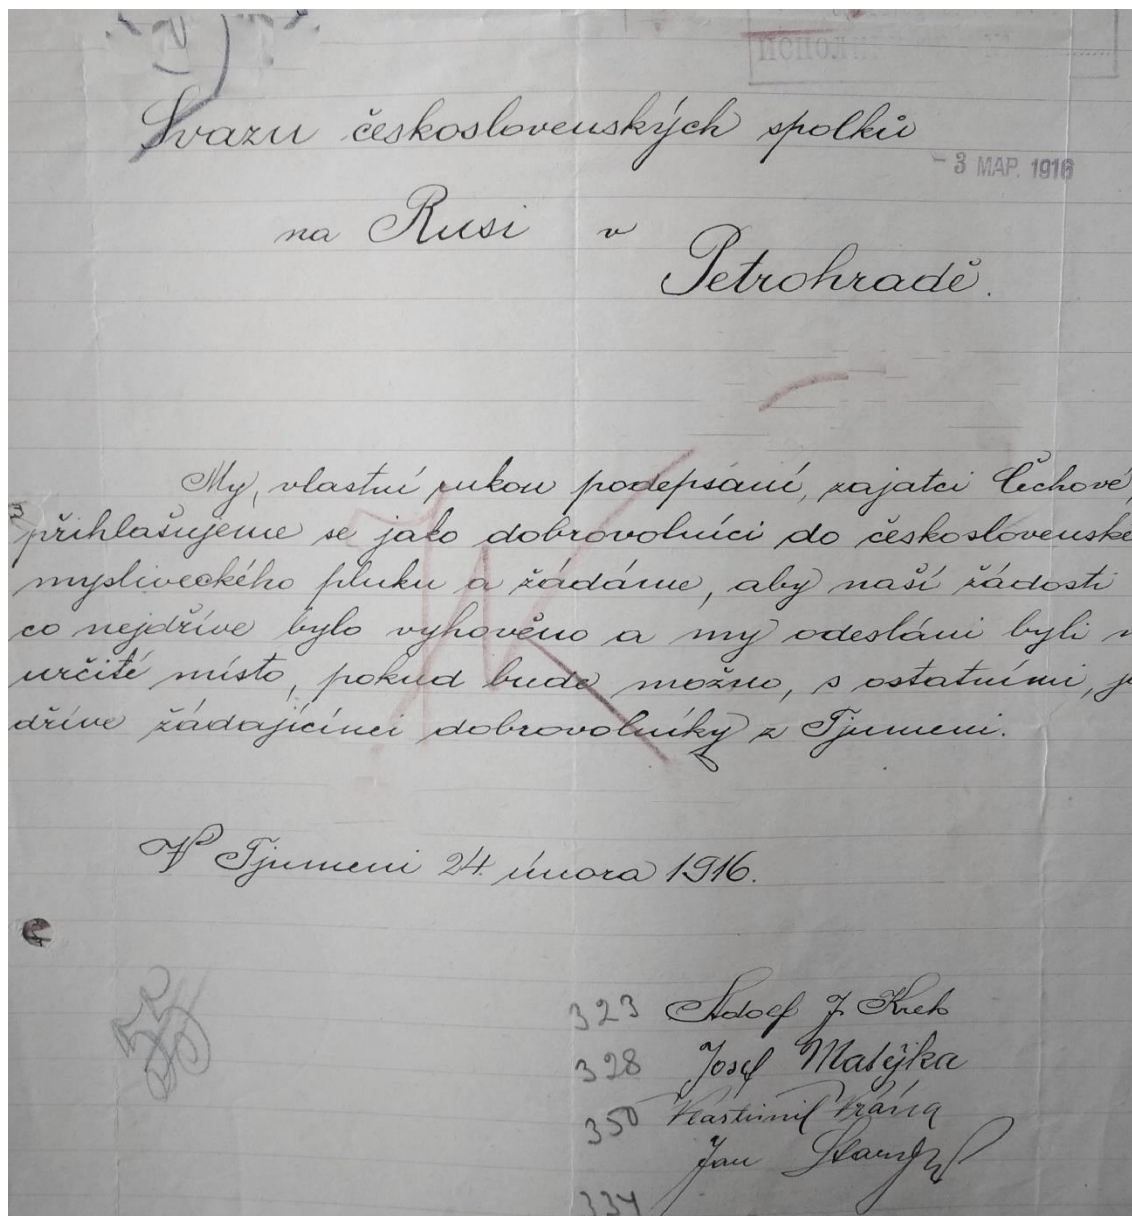 Svazu československých spolků
- 3 МАР. 1916
na Rusi v
Petrohradě.
My, vlastní rukou podepsaní, zajatci Čechové,
přihlašujeme se jako dobrovolníci do československé
mysliveckého pluku a žádáme, aby naší žádosti
co nejdříve bylo vyhověno a my odesláni byli
určité místo, pokud bude možno, s ostatními,
dříve žádajícími dobrovolníky z Tjumeni.
V Tjumeni 24. února 1916.
323 Adolf J.
328 Josef Matějka
350 Vlastimil Vrána
Jan
334